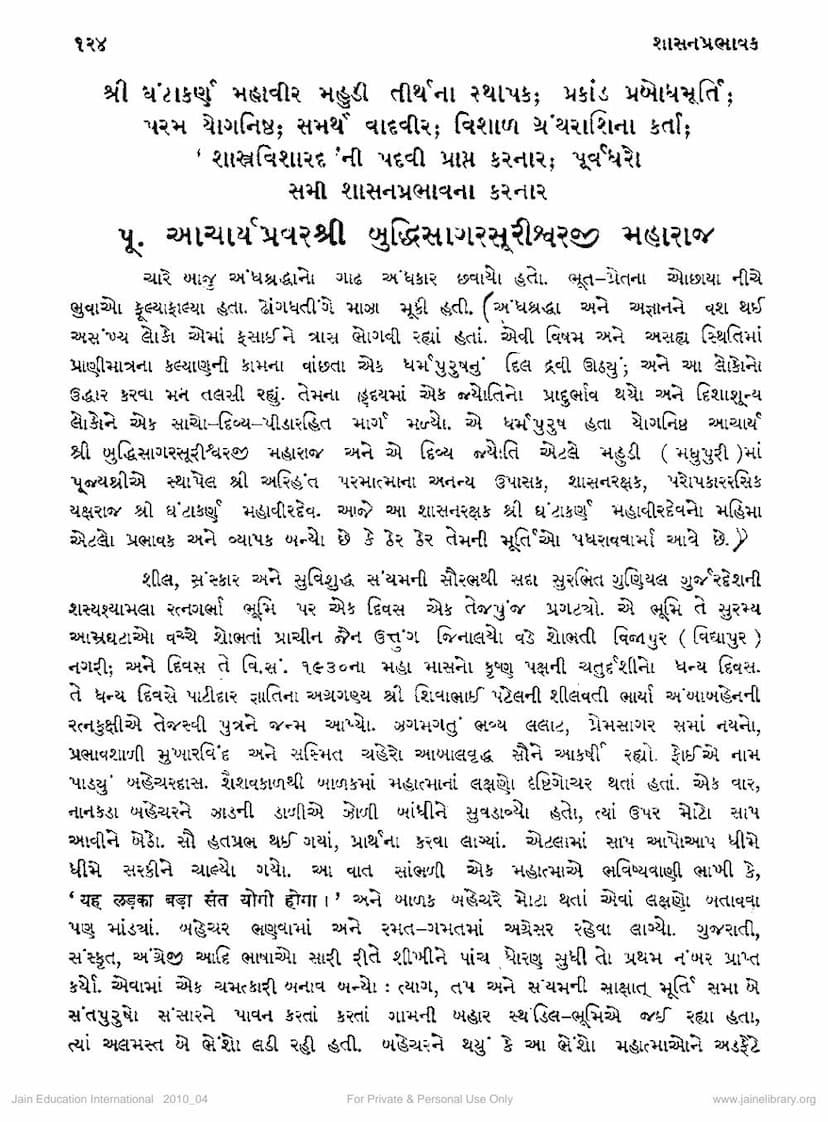 ૧૨૪ શાસનપ્રભાવક
શ્રી ઘંટાકર્ણ મહાવીર મહુડી તીર્થના સ્થાપક; પ્રકાંડ પ્રબોધમૂર્તિ;
પરમ યોગનિષ્ઠ; સમર્થ વાદવીર; વિશાળ ગ્રંથરાશિના કર્તા;
‘ શાસ્ત્રવિશારદ ’ની પદવી પ્રાપ્ત કરનાર; પૂર્વધરો
સમી શાસનપ્રભાવના કરનાર
પૂ. આચાર્યપ્રવરશ્રી બુદ્ધિસાગરસૂરીશ્વરજી મહારાજ
ચારે બાજુ અંધશ્રદ્ધાનો ગાઢ અંધકાર છવાયો હતો. ભૂત-પ્રેતના ઓછાયા નીચે
ભુવાઓ ફૂલ્યાફાલ્યા હતા. ઢોંગધતીંગે માઝા મૂકી હતી. (અંધશ્રદ્ધા અને અજ્ઞાનને વશ થઈ
અસંખ્ય લોકો એમાં ફસાઈને ત્રાસ ભોગવી રહ્યાં હતાં. એવી વિષમ અને અસહ્ય સ્થિતિમાં
પ્રાણીમાત્રના કલ્યાણની કામના વાંછતા એક ધર્મપુરુષનું દિલ દ્રવી ઊઠ્યું; અને આ લોકોનો
ઉદ્ધાર કરવા મન તલસી રહ્યું. તેમના હૃદયમાં એક જ્યોતિનો પ્રાદુર્ભાવ થયો અને દિશાશૂન્ય
લોકોને એક સાચો-દિવ્ય-પીડારહિત માર્ગ મળ્યો. એ ધર્મપુરુષ હતા યોગનિષ્ઠ આચાર્ય
શ્રી બુદ્ધિસાગરસૂરીશ્વરજી મહારાજ અને એ દિવ્ય જ્યોતિ એટલે મહુડી ( મધુપુરી )માં
પૂજ્યશ્રીએ સ્થાપેલ શ્રી અરિહંત પરમાત્માના અનન્ય ઉપાસક, શાસનરક્ષક, પરોપકારરસિક
યક્ષરાજ શ્રી ઘંટાકર્ણ મહાવીરદેવ. આજે આ શાસનરક્ષક શ્રી ઘંટાકર્ણ મહાવીરદેવનો મહિમા
એટલો પ્રભાવક અને વ્યાપક બન્યો છે કે ઠેર ઠેર તેમની મૂર્તિઓ પધરાવવામાં આવે છે.)
શીલ, સંસ્કાર અને સુવિશુદ્ધ સંયમની સૌરભથી સદા સુરભિત ગુણિયલ ગુર્જરદેશની
શસ્યશ્યામલા રત્નગર્ભા ભૂમિ પર એક દિવસ એક તેજપુંજ પ્રગટ્યો. એ ભૂમિ તે સુરમ્ય
આમ્રઘટાઓ વચ્ચે શોભતાં પ્રાચીન જૈન ઉત્તુંગ જિનાલયો વડે શોભતી વિજાપુર ( વિદ્યાપુર )
નગરી; અને દિવસ તે વિ.સં. ૧૯૩૦ના મહા માસનો કૃષ્ણ પક્ષની ચતુર્દશીનો ધન્ય દિવસ.
તે ધન્ય દિવસે પાટીદાર જ્ઞાતિના અગ્રગણ્ય શ્રી શિવાભાઈ પટેલની શીલવતી ભાર્યા અંબાબહેનની
રત્નકુક્ષીએ તેજસ્વી પુત્રને જન્મ આપ્યો. ઝગમગતું ભવ્ય લલાટ, પ્રેમસાગર સમાં નયનો,
પ્રભાવશાળી મુખારવિંદ અને સસ્મિત ચહેરો આબાલવૃદ્ધ સૌને આકર્ષી રહ્યો. ફોઈએ નામ
પાડ્યું બહેચરદાસ. શૈશવકાળથી બાળકમાં મહાત્માનાં લક્ષણો દૃષ્ટિગોચર થતાં હતાં. એક વાર,
નાનકડા બહેચરને ઝાડની ડાળીએ ઝોળી બાંધીને સુવડાવ્યો હતો, ત્યાં ઉપર મોટો સાપ
આવીને બેઠો. સૌ હતપ્રભ થઈ ગયાં, પ્રાર્થના કરવા લાગ્યાં. એટલામાં સાપ આપોઆપ ધીમે
ધીમે સરકીને ચાલ્યો ગયો. આ વાત સાંભળી એક મહાત્માએ ભવિષ્યવાણી ભાખી કે,
‘ यह लड़का बड़ा संत योगी होगा । ’ અને બાળક બહેચરે મોટા થતાં એવાં લક્ષણો બતાવવા
પણ માંડ્યાં. બહેચર ભણવામાં અને રમત-ગમતમાં અગ્રેસર રહેવા લાગ્યો. ગુજરાતી,
સંસ્કૃત, અંગ્રેજી આદિ ભાષાઓ સારી રીતે શીખીને પાંચ ધોરણ સુધી તો પ્રથમ નંબર પ્રાપ્ત
કર્યો. એવામાં એક ચમત્કારી બનાવ બન્યો : ત્યાગ, તપ અને સંયમની સાક્ષાત્ મૂર્તિ સમા બે
સંતપુરુષો સંસારને પાવન કરતાં કરતાં ગામની બહાર સ્થંડિલ-ભૂમિએ જઈ રહ્યા હતા,
ત્યાં અલમસ્ત બે ભેંશો લડી રહી હતી. બહેચરને થયું કે આ ભેંશો મહાત્માઓને અડફેટે
Jain Education International 2010_04 For Private & Personal Use Only www.jainelibrary.org